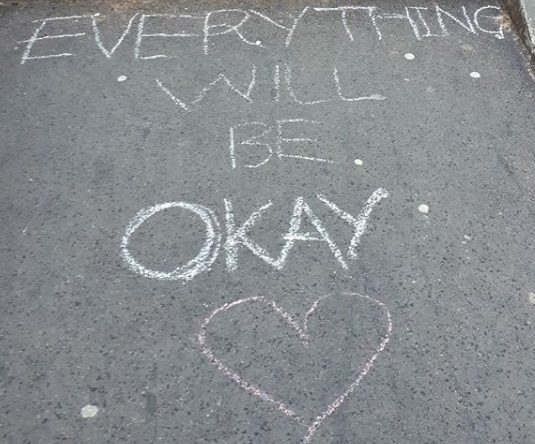 EVERYTHING
WILL
BE
OKAY